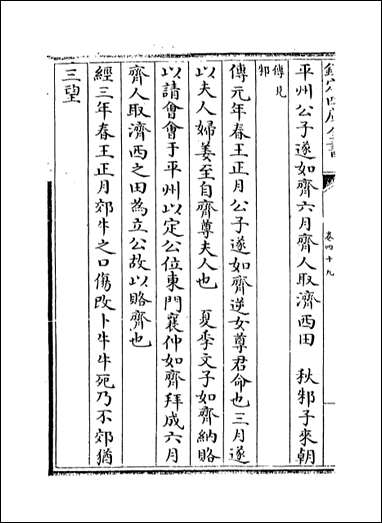 欽定四庫全書
卷四十九
平州公子遂如齊六月齊人取濟西田　秋邾子來朝
傳見
邾
傳元年春王正月公子遂如齊逆女尊君命也三月遂
以夫人婦姜至自齊尊夫人也　夏季文子如齊納賂
以請會會于平州以定公位東門襄仲如齊拜成六月
齊人取濟西之田為立公故以賂齊也
經三年春王正月郊牛之口傷改卜牛牛死乃不郊猶
三望